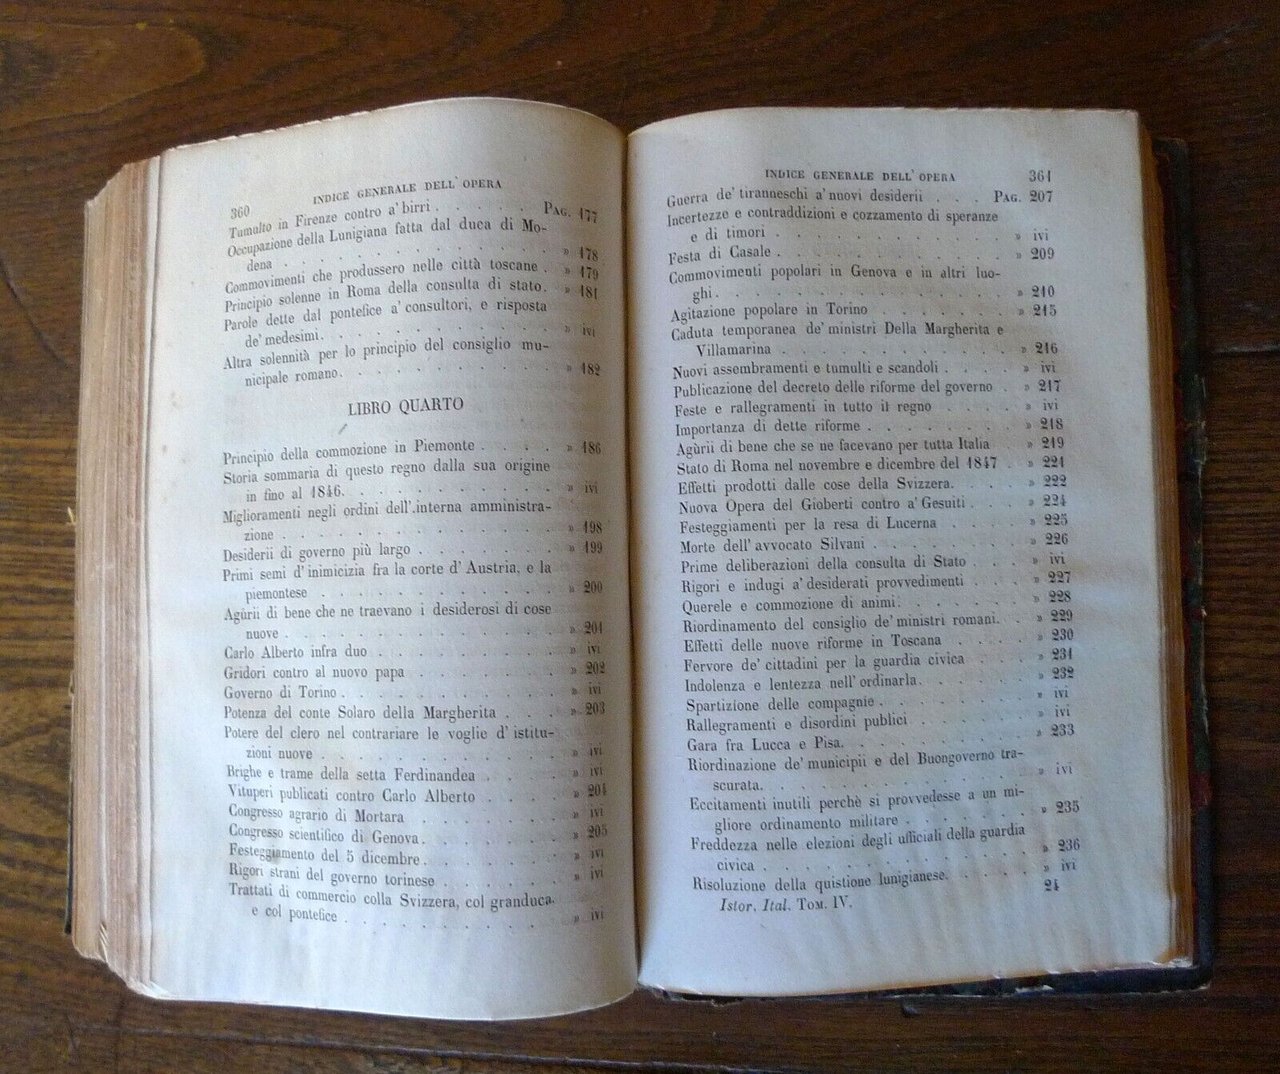 360 INDICE GENERALE DELL' OPERA
Tumulto in Firenze contro a' birri . . . . . PAG. 177
Occupazione della Lunigiana fatta dal duca di Mo-
dena . . . . . . . . . . . . » 178
Commovimenti che produssero nelle città toscane . » 179
Principio solenne in Roma della consulta di stato. » 181
Parole dette dal pontefice a' consultori, e risposta
de' medesimi. . . . . . . . . . . » ivi
Altra solennità per lo principio del consiglio mu-
nicipale romano. . . . . . . . . . » 182
LIBRO QUARTO
Principio della commozione in Piemonte . . . . » 186
Storia sommaria di questo regno dalla sua origine
in fino al 1846. . . . . . . . . . » ivi
Miglioramenti negli ordini dell' interna amministra-
zione . . . . . . . . . . . . » 198
Desiderii di governo più largo . . . . . . . » 199
Primi semi d' inimicizia fra la corte d' Austria, e la
piemontese . . . . . . . . . . . » 200
Agùrii di bene che ne traevano i desiderosi di cose
nuove . . . . . . . . . . . . » 201
Carlo Alberto infra duo . . . . . . . . » ivi
Gridori contro al nuovo papa . . . . . . . » 202
Governo di Torino . . . . . . . . . . » ivi
Potenza del conte Solaro della Margherita . . . » 203
Potere del clero nel contrariare le voglie d' istitu-
zioni nuove . . . . . . . . . . . » ivi
Brighe e trame della setta Ferdinandea . . . . » ivi
Vituperi publicati contro Carlo Alberto . . . . » 204
Congresso agrario di Mortara . . . . . . . » ivi
Congresso scientifico di Genova. . . . . . . » 205
Festeggiamento del 5 dicembre. . . . . . . » ivi
Rigori strani del governo torinese . . . . . . » ivi
Trattati di commercio colla Svizzera, col granduca.
e col pontefice . . . . . . . . . . » ivi
INDICE GENERALE DELL' OPERA 361
Guerra de' tiranneschi a' nuovi desiderii . . . PAG. 207
Incertezze e contraddizioni e cozzamento di speranze
e di timori . . . . . . . . . . . » ivi
Festa di Casale . . . . . . . . . . . » 209
Commovimenti popolari in Genova e in altri luo-
ghi. . . . . . . . . . . . . » 210
Agitazione popolare in Torino . . . . . . . » 215
Caduta temporanea de' ministri Della Margherita e
Villamarina . . . . . . . . . . . » 216
Nuovi assembramenti e tumulti e scandoli . . . » ivi
Publicazione del decreto delle riforme del governo . » 217
Feste e rallegramenti in tutto il regno . . . . » ivi
Importanza di dette riforme . . . . . . . » 218
Agùrii di bene che se ne facevano per tutta Italia » 219
Stato di Roma nel novembre e dicembre del 1847 . » 221
Effetti prodotti dalle cose della Svizzera. . . . » 222
Nuova Opera del Gioberti contro a' Gesuiti . . . » 224
Festeggiamenti per la resa di Lucerna . . . . » 225
Morte dell' avvocato Silvani . . . . . . . » 226
Prime deliberazioni della consulta di Stato . . . » ivi
Rigori e indugi a' desiderati provvedimenti . . . » 227
Querele e commozione di animi. . . . . . . » 228
Riordinamento del consiglio de' ministri romani. . » 229
Effetti delle nuove riforme in Toscana . . . . » 230
Fervore de' cittadini per la guardia civica . . . » 231
Indolenza e lentezza nell' ordinarla. . . . . . » 232
Spartizione delle compagnie. . . . . . . . » ivi
Rallegramenti e disordini publici . . . . . . » ivi
Gara fra Lucca e Pisa. . . . . . . . . » 233
Riordinazione de' municipii e del Buongoverno tra-
scurata. . . . . . . . . . . . » ivi
Eccitamenti inutili perchè si provvedesse a un mi-
gliore ordinamento militare . . . . . . . » 235
Freddezza nelle elezioni degli ufficiali della guardia
civica . . . . . . . . . . . . » 236
Risoluzione della quistione lunigianese. . . . . » ivi
Istor. Ital. TOM. IV. 24